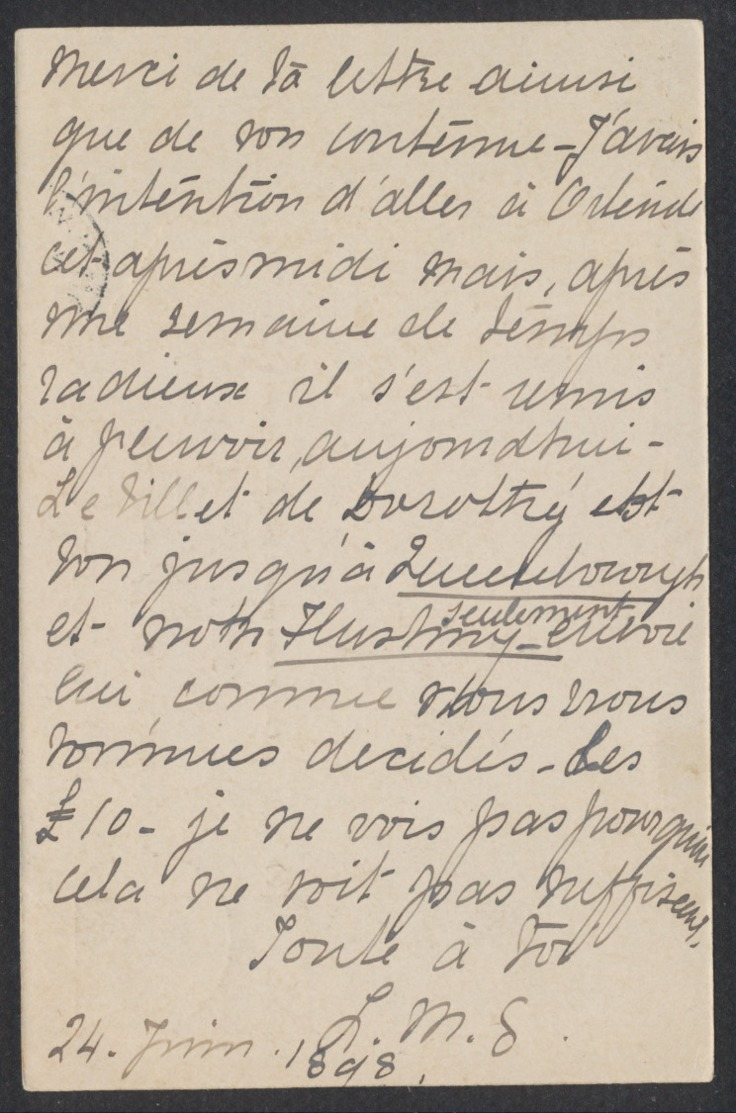 Merci de ta lettre ainsi
que de son contenue - J'avais
l'intention d'aller à Ostende
cet après midi mais, après
une semaine de temps
radieux il s'est remis
à pleuvoir, aujourd'hui -
Le billet de Dorothy est
bon jusqu'à Queenborough
et non Flushing - seulement
lui comme nous nous
sommes decidés - Les
£10 - je ne vois pas pourquoi
cela ne soit pas suffisant.
Toute à toi
L. M. S.
24. Juin. 1898.